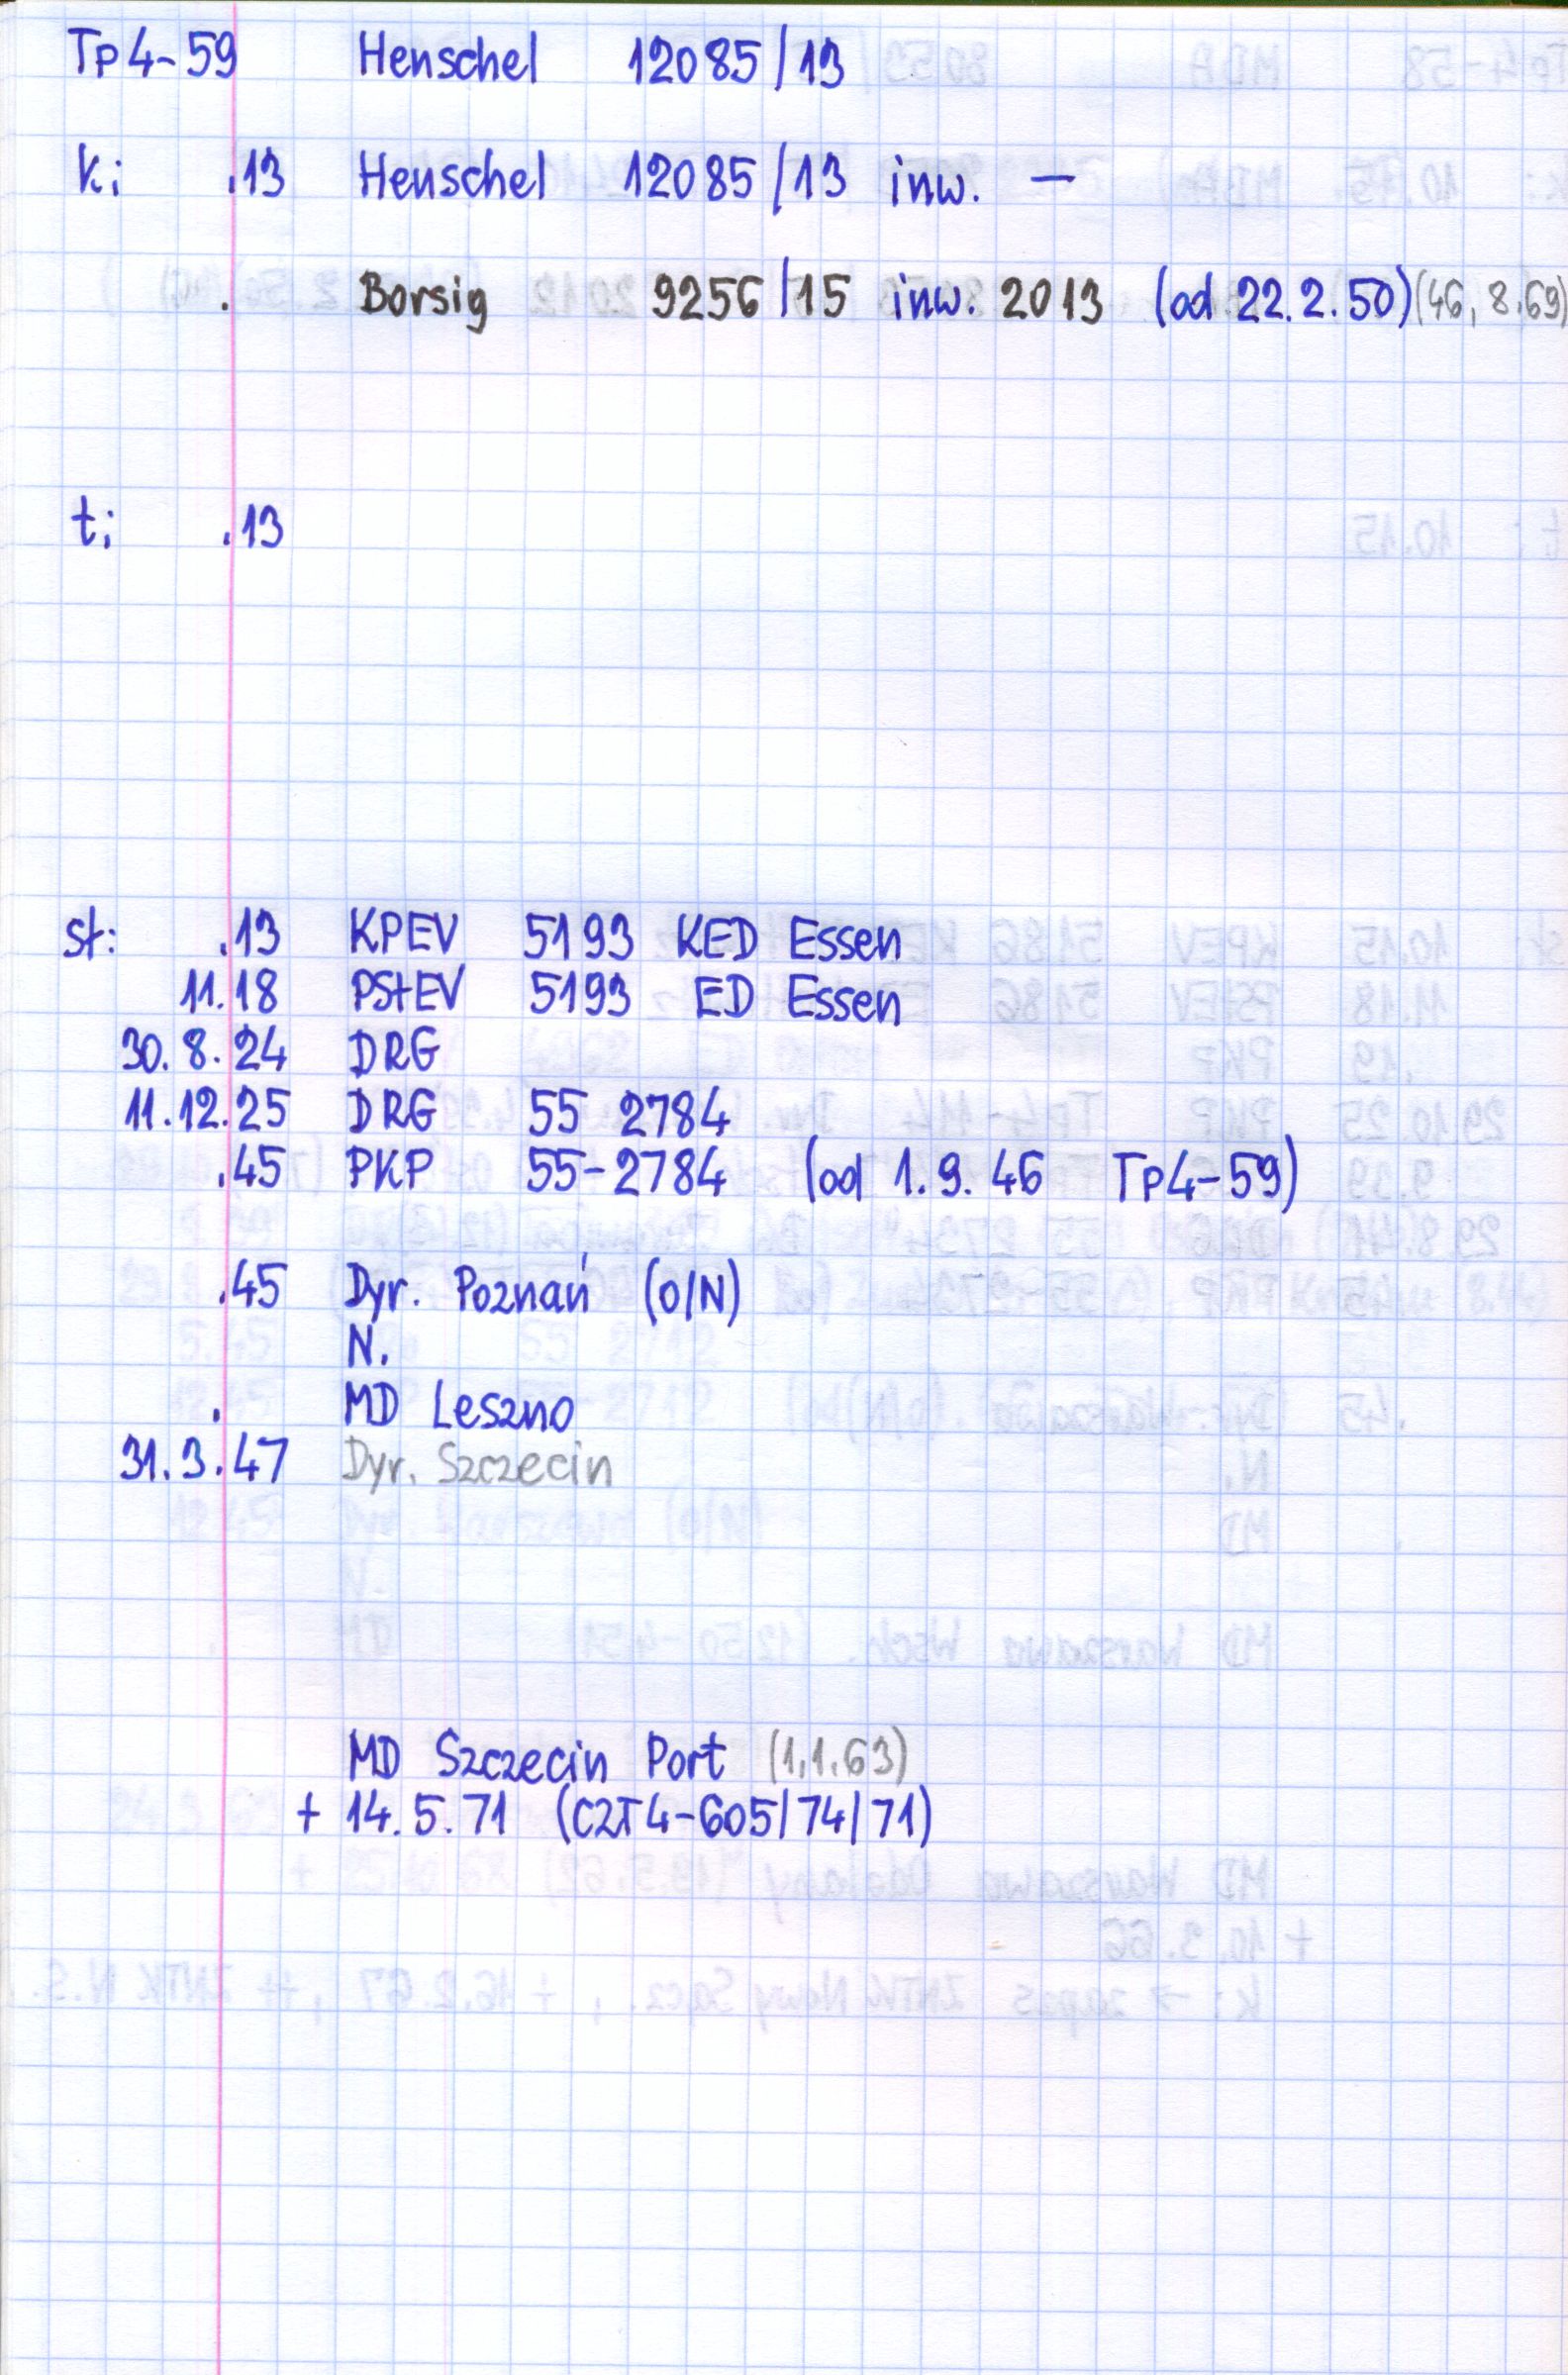 Tp4-59 Henschel 12085/13
k: .13 Henschel 12085/13 inw. —
. Borsig 9256/15 inw. 2013 (od 22.2.50) (46, 8.69)
t: .13
st: .13 KPEV 5193 KED Essen
11.18 PStEV 5193 ED Essen
30.8.24 DRG
11.12.25 DRG 55 2784
.45 PKP 55-2784 (od 1.9.46 Tp4-59)
.45 Dyr. Poznań (O/N)
N.
. MD Leszno
31.3.47 Dyr. Szczecin
MD Szczecin Port (1.1.63)
+ 14.5.71 (C2T4-605/74/71)